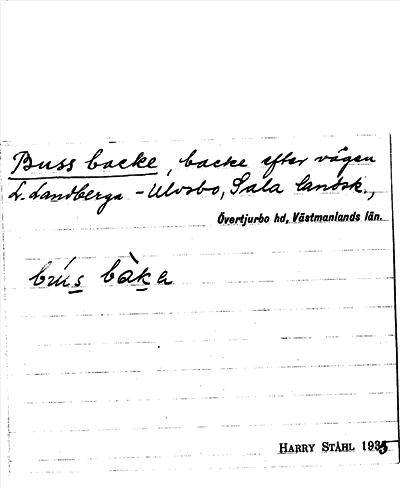 Buss backe, backe efter vägen
L. Landberga - Ulvsbo, Sala landsk.,
Övertjurbo hd, Västmanlands län.
bús bàka
HARRY STÅHL 1935